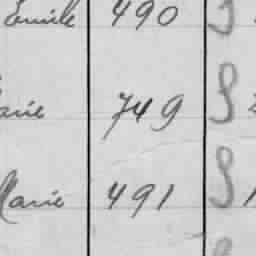 Emile 490 S
arie 749 S
Marie 491 S